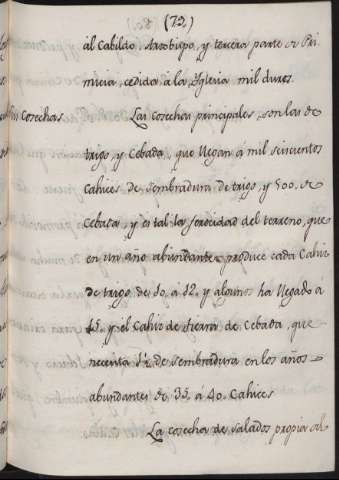 (72)
al Cabildo, Arzobispo, y tercera parte de Pri
micia, cedida a la Yglesia mil duros.
Sus Cosechas
Las cosechas principales, son las de
trigo, y Cebada, que llegan á mil seiscientos
cahices de sembradura de trigo, y 500. de
Cebada, y es tal la ferocidad del terreno, que
en un año abundante produce cada Cahiz
de trigo de 30. á 32. y algunos ha llegado á
45. y el Cahiz de tierra de Cebada, que
necesita de sembradura en los años
abundantes de 35. á 40. Cahices
La cosecha de salados propia del